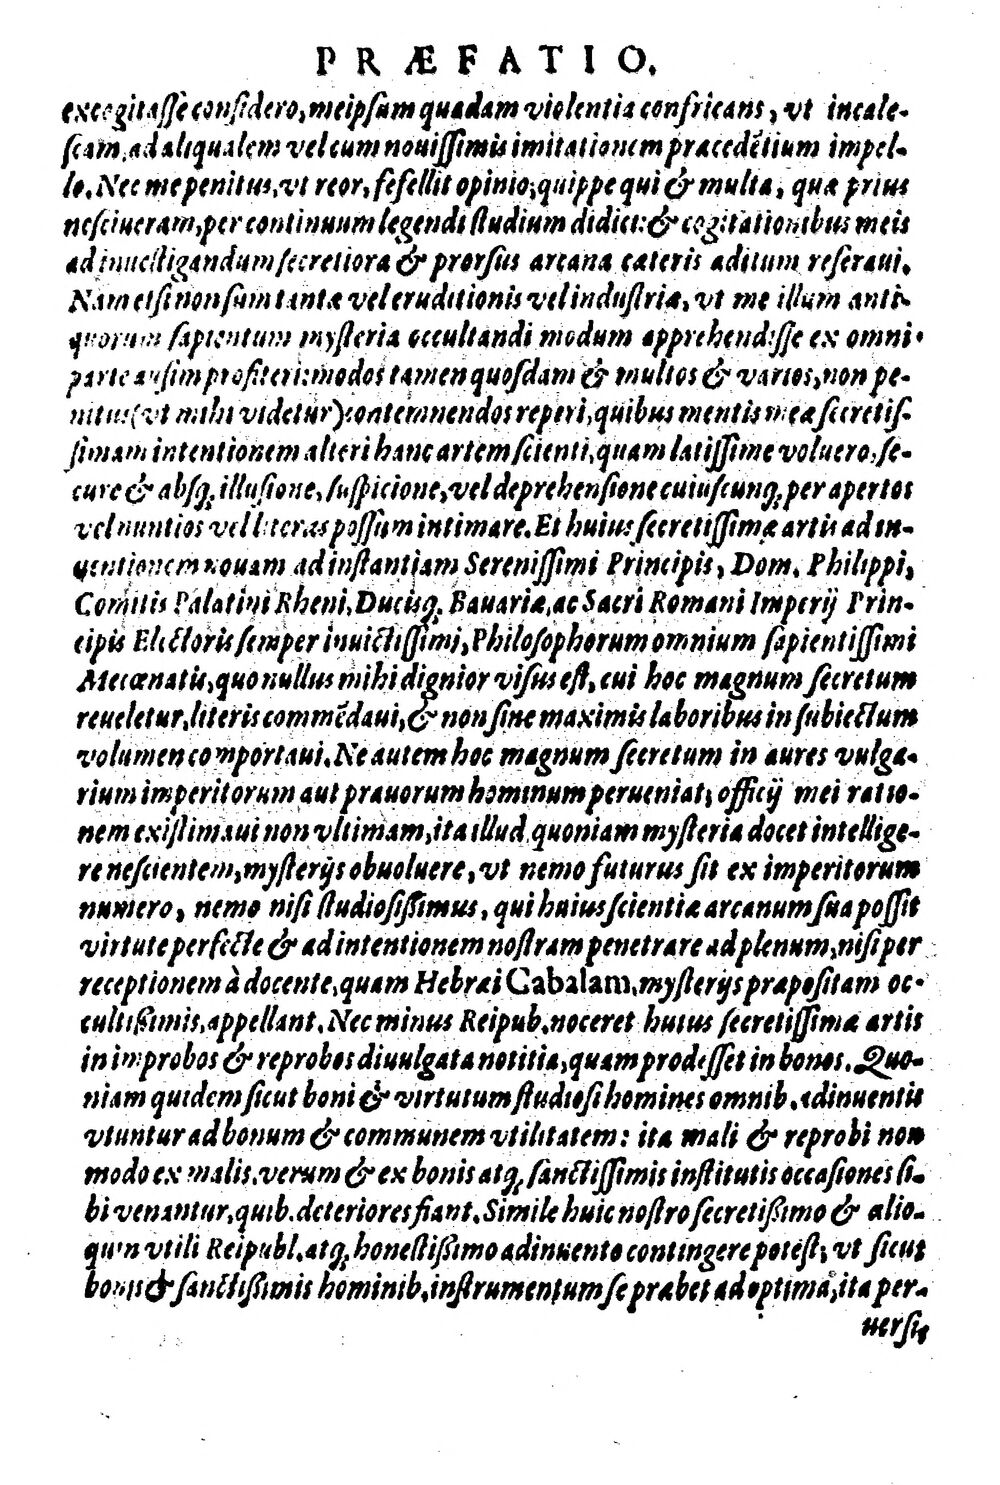 PRÆFATIO.
excogitaſſe conſidero, meipſum quadam violentia confricans, vt incale-
ſcam, ad aliqualem vel cum nouiſſimis imitationem præcedẽtium impel-
lo. Nec me penitus, vt reor, fefellit opinio, quippe qui & multa, quæ prius
neſciueram, per continuum legendi ſtudium didici: & cogitationibus meis
ad inueſtigandum ſecretiora & prorſus arcana cæteris aditum reſeraui.
Nam etſi non ſum tantæ vel eruditionis vel induſtriæ, vt me illum anti-
quorum ſapientum myſteria occultandi modum apprehendiſſe ex omni
parte auſim profiteri: modos tamen quoſdam & multos & varios, non pe-
nitus (vt mihi videtur) contemnendos reperi, quibus mentis meæ ſecretiſ-
ſimam intentionem alteri hanc artem ſcienti, quam latiſſime voluero, ſe-
cure & abſq; illuſione, ſuſpicione, vel deprehenſione cuiuſcunq; per apertos
vel nuntios vel literas poſſum intimare. Et huius ſecretiſſimæ artis ad in-
uentionem nouam ad inſtantiam Sereniſſimi Principis, Dom. Philippi,
Comitis Palatini Rheni, Duciſq; Bauariæ, ac Sacri Romani Imperij Prin-
cipis Electoris ſemper inuictiſſimi, Philoſophorum omnium ſapientiſſimi
Mecœnatis, quo nullus mihi dignior viſus eſt, cui hoc magnum ſecretum
reueletur, literis commẽdaui, & non ſine maximis laboribus in ſubiectum
volumen comportaui. Ne autem hoc magnum ſecretum in aures vulga-
rium imperitorum aut prauorum hominum perueniat, officij mei ratio-
nem exiſtimaui non vltimam, ita illud, quoniam myſteria docet intellige-
re neſcientem, myſterijs obuoluere, vt nemo futurus ſit ex imperitorum
numero, nemo niſi ſtudioſißimus, qui huius ſcientiæ arcanum ſua poſſit
virtute perfecte & ad intentionem noſtram penetrare ad plenum, niſi per
receptionem à docente, quam Hebræi Cabalam, myſterijs præpoſitam oc-
cultißimis, appellant. Nec minus Reipub. noceret huius ſecretiſſimæ artis
in improbos & reprobos diuulgata notitia, quam prodeſſet in bonos. Quo-
niam quidem ſicut boni & virtutum ſtudioſi homines omnib. adinuentis
vtuntur ad bonum & communem vtilitatem: ita mali & reprobi non
modo ex malis, verum & ex bonis atq; ſanctiſſimis inſtitutis occaſiones ſi-
bi venantur, quib. deteriores fiant. Simile huic noſtro ſecretißimo & alio-
quin vtili Reipubl. atq; honeſtißimo adinuento contingere poteſt, vt ſicut
bonis & ſanctißimis hominib. inſtrumentum ſe præbet ad optima, ita per-
uerſis